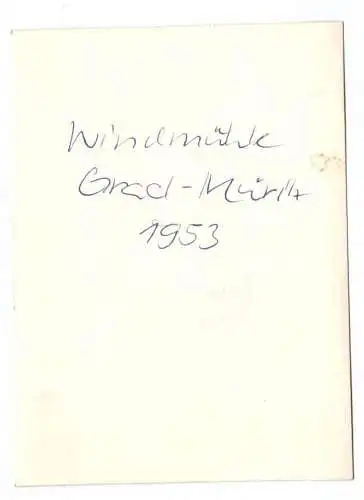 Windmühle
Graal-Müritz
1953